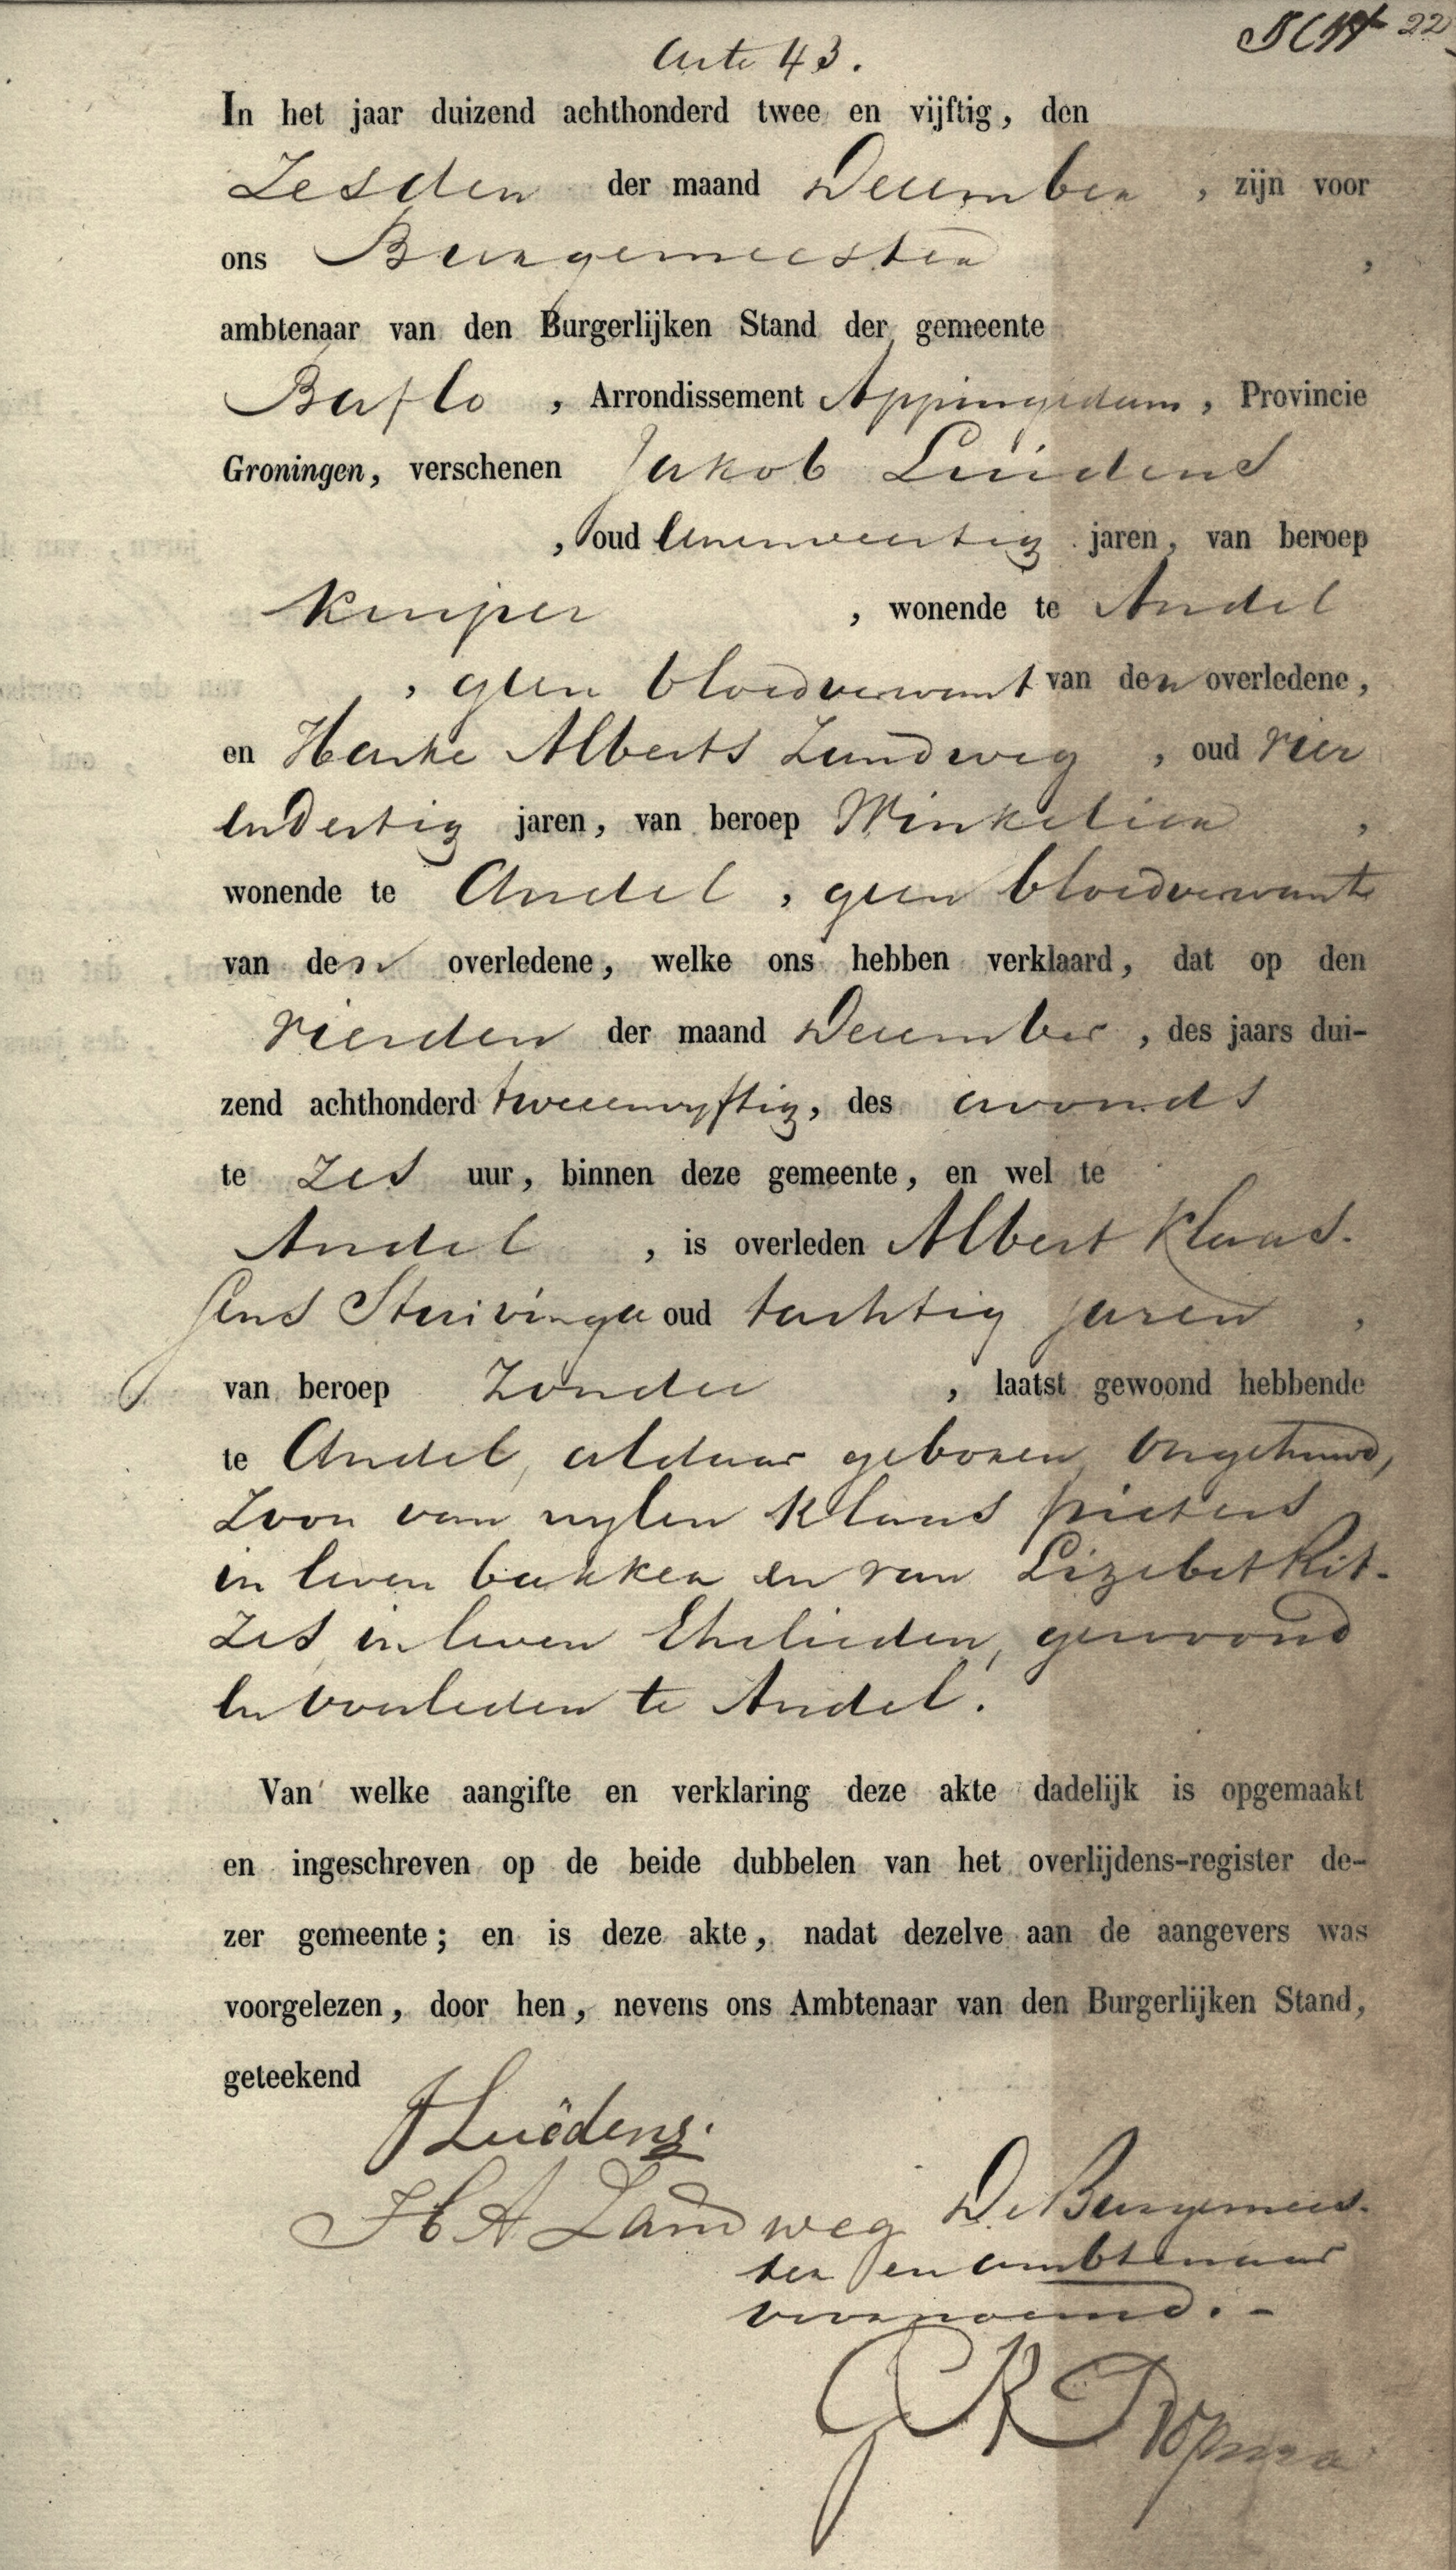 Acte 43.
22
In het jaar duizend achthonderd twee en vijftig, den
Zesden der maand December, zijn voor
ons Burgemeester,
ambtenaar van den Burgerlijken Stand der gemeente
Baflo, Arrondissement Appingedam, Provincie
Groningen, verschenen Jakob Luidens
, oud eenenveertig jaren, van beroep
Kuiper, wonende te Andel
, geen bloedverwant van den overledene,
en Harke Alberts Landweg, oud vier
endertig jaren, van beroep Winkelier,
wonende te Andel, geen bloedverwant
van den overledene, welke ons hebben verklaard, dat op den
vierden der maand December, des jaars dui-
zend achthonderd tweeenvyftig, des avonds
te zes uur, binnen deze gemeente, en wel te
Andel, is overleden Albert Klaas-
sens Stuivinga oud tachtig jaren,
van beroep Zonder, laatst gewoond hebbende
te Andel, aldaar geboren, Ongehuwd,
Zoon van wylen Klaas Pieters
in leven bakker en van Lizebet Rit-
zes, in leven Ehelieden, gewoond
en overleden te Andel.
Van welke aangifte en verklaring deze akte dadelijk is opgemaakt
en ingeschreven op de beide dubbelen van het overlijdens-register de-
zer gemeente; en is deze akte, nadat dezelve aan de aangevers was
voorgelezen, door hen, nevens ons Ambtenaar van den Burgerlijken Stand,
geteekend
J Luidens.
H A Landweg
De Burgemees-
ter en ambtenaar
voornoemd. -